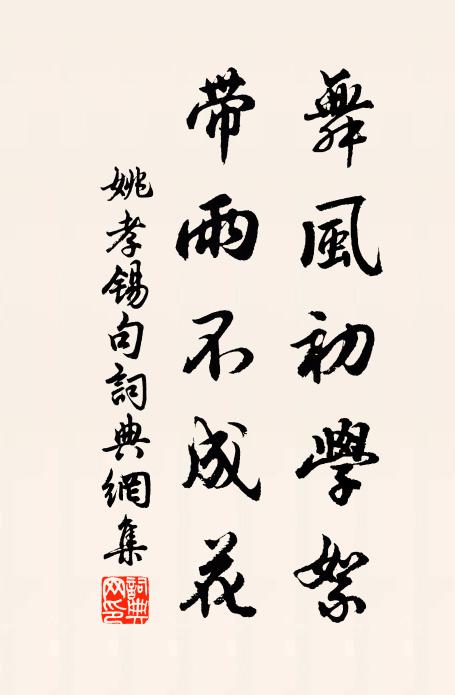 舞風初學絮
帶雨不成花
姚孝錫句詞典網集
詞典网印